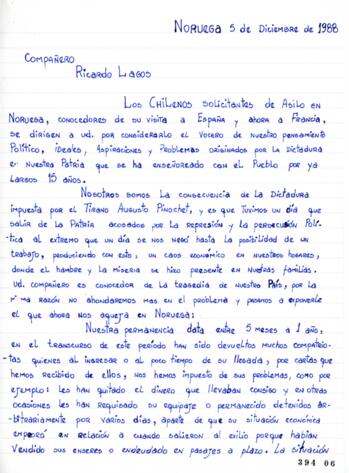 NORUEGA 5 de Diciembre de 1988
COMPAÑERO
Ricardo Lagos
Los CHILENOS Solicitantes de Asilo en
NORUEGA, CONOCEDORES de su visita a España y ahora a Francia,
se dirigen a ud. por considerarlo el vocero de nuestro pensamiento
Político, ideales, Aspiraciones y Problemas originados por la Dictadura
en Nuestra Patria que se ha enseñoreado con el Pueblo por ya
largos 15 años.
Nosotros somos la consecuencia de la Dictadura
impuesta por el Tirano Augusto Pinochet, y es que tuvimos un día que
salir de la Patria acosados por la represión y la persecusión Polí-
tica al extremo que un día se nos negó hasta la posibilidad de un
trabajo, produciendo con esto, un caos económico en nuestros hogares,
donde el hambre y la miseria se hizo presente en nuestras familias.
Ud. compañero es conocedor de la tragedia de nuestro País, por la
misma razón no ahondaremos mas en el problema y pasamos a exponerle
el que ahora nos aqueja en Noruega:
Nuestra permanencia data entre 5 meses a 1 año,
en el transcurso de este período han sido devueltos muchos compatrio-
-tas quienes al ingresar o al poco tiempo de su llegada, por cartas que
hemos recibido de ellos, nos hemos impuesto de sus problemas, como por
ejemplo: les han quitado el dinero que llevaban consigo y en otras
ocasiones les han requisado su equipaje o permanecido detenidos ar-
-bitrariamente por varios días, aparte de que su situación económica
empeoró en relación a cuando salieron al exilio porque habían
vendido sus enseres o endeudado en pasajes a plazo. La situación
394 06